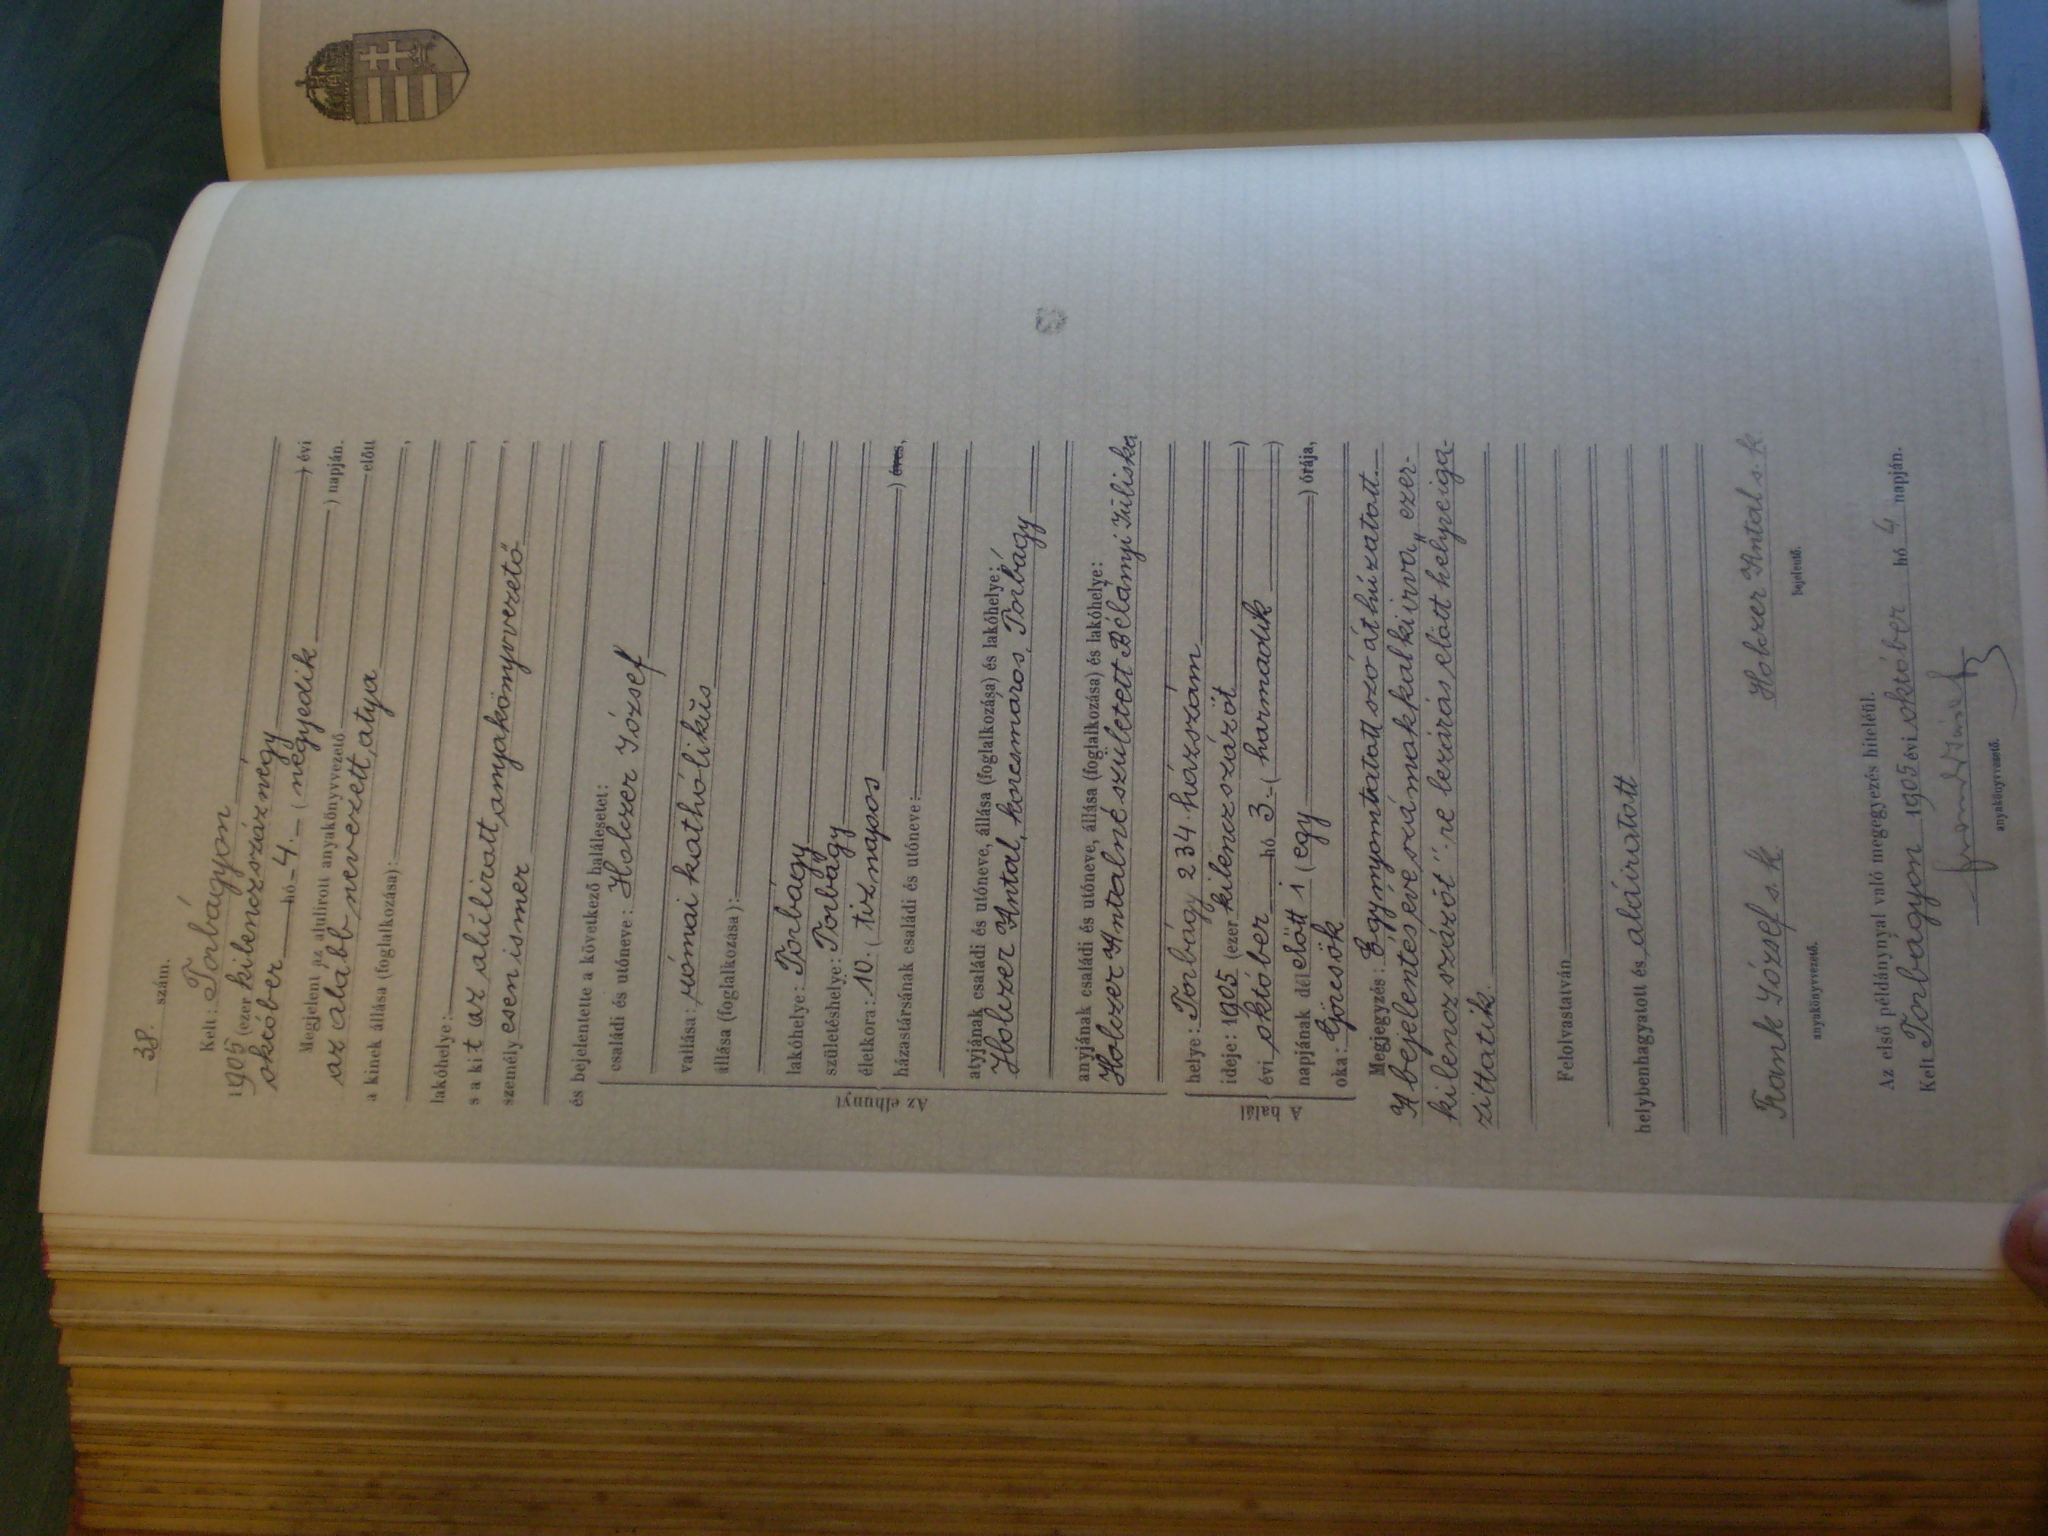 38. szám.
Kelt: Torbágyon,
1905 (ezer kilenczszáznégy) évi
október hó 4. (negyedik) napján.
Megjelent az alulirott anyakönyvvezető előtt
az alább nevezett, atya
a kinek állása (foglalkozása):
lakóhelye:
s a kit az alúlirott anyakönyvvezető
személyesen ismer
és bejelentette a következő halálesetet:
Az elhunyt
családi és utóneve: Holczer József
vallása: római kathólikus
állása (foglalkozása):
lakóhelye: Torbágy
születéshelye: Torbágy
életkora: 10. (tiz napos) éves,
házastársának családi és utóneve:
atyjának családi és utóneve, állása (foglalkozása) és lakóhelye:
Holczer Antal, korcsmáros, Torbágy
anyjának családi és utóneve, állása (foglalkozása) és lakóhelye:
Holczer Antalné született Bélányi Júliska
A halál
helye: Torbágy 234. házszám
ideje: 1905 (ezer kilenczszázöt)
évi október hó 3. (harmadik)
napjának dél előtt 1 (egy) órája,
oka: Görcsök
Megjegyzés: Egy nyomtatott szó áthúzatott.
A bejelentés éve, számokkal kiirva „ezer-
kilenczszázöt"-re lezárás előtt helyreiga-
zittatik.
Felolvastatván
helybenhagyatott és aláiratott
Frank József s. k. Holczer Antal s. k
anyakönyvvezető. bejelentő.
Az első példánynyal való megegyezés hiteléül.
Kelt Torbágyon 1905 évi október hó 4 napján.
Frank József
anyakönyvvezető.